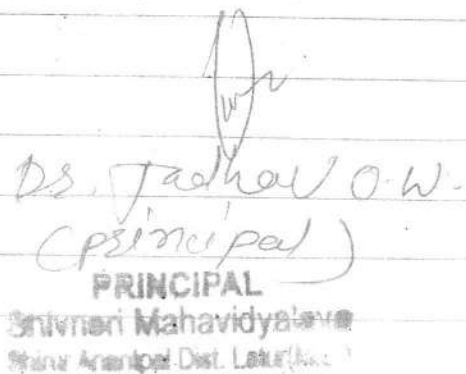 Dr. Jadhav O.W.
(principal)
PRINCIPAL
Shivneri Mahavidyalaya
Shirur Anantpal Dist. Latur